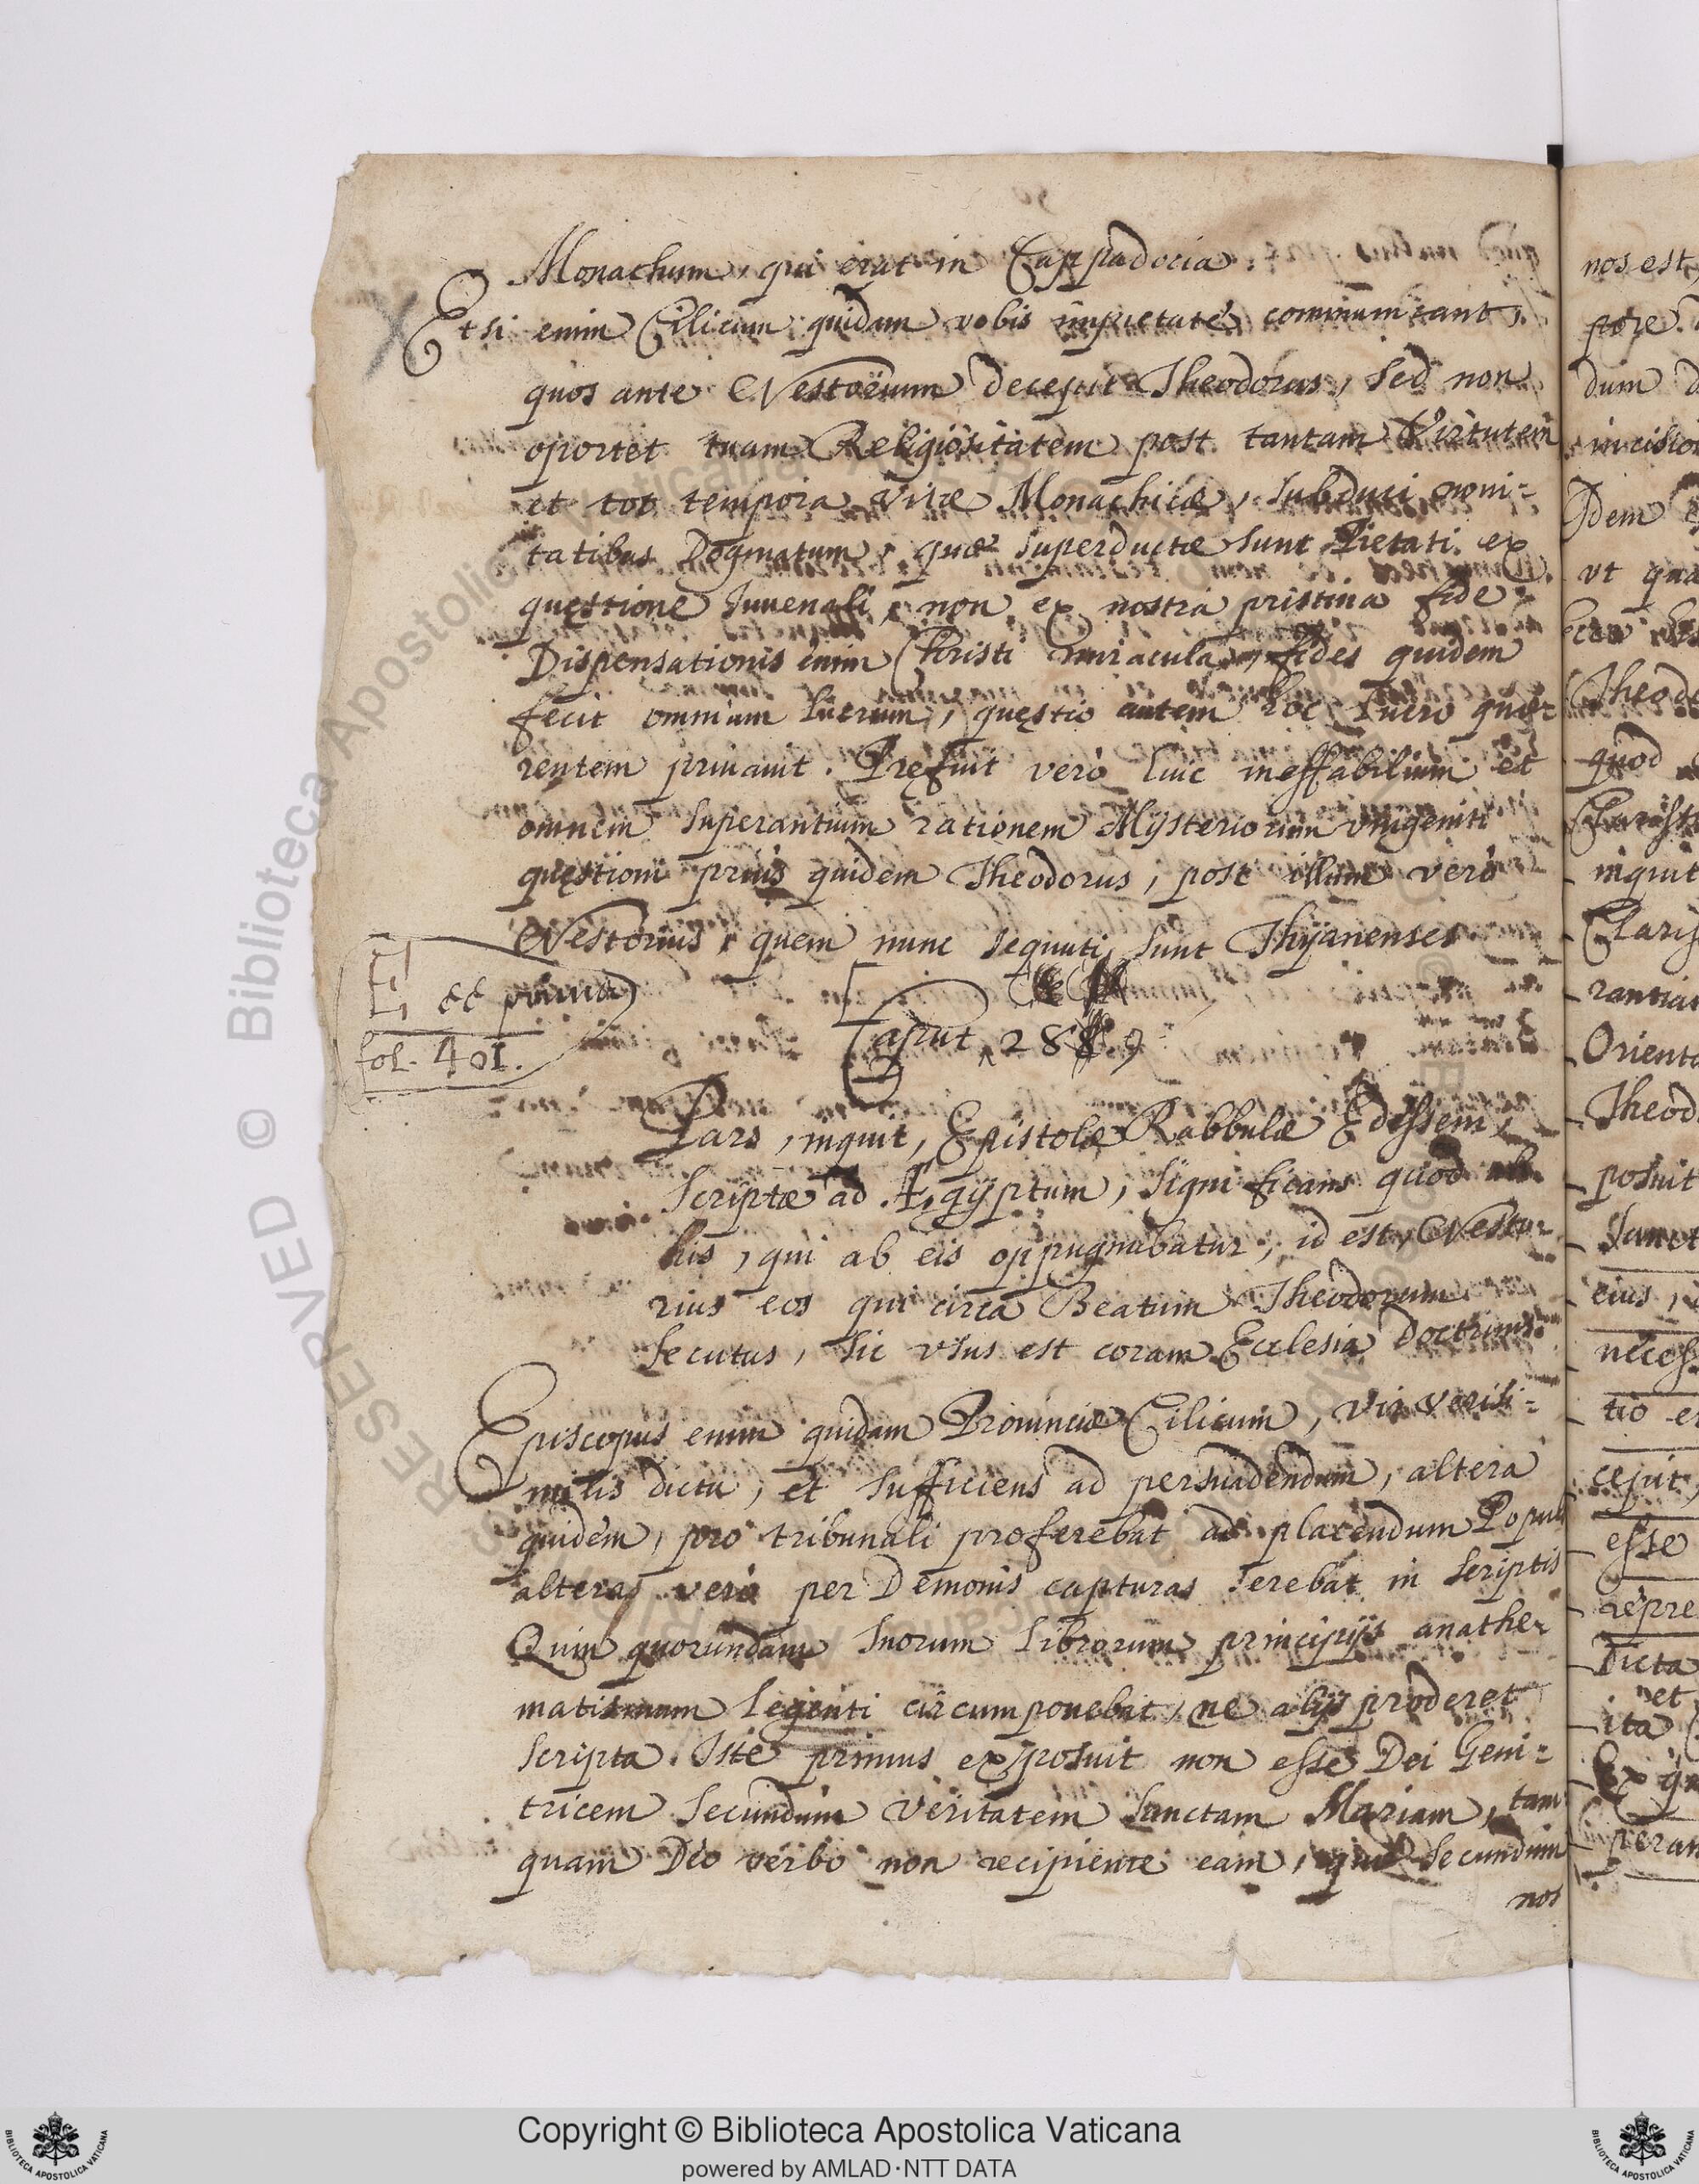 Monachum, qui erat in Cappadocia.
Etsi enim Cilicum quidam vobis impietate communicant,
quos ante Nestorium decepit Theodorus, sed non
oportet tuam Religiositatem post tantam Virtutem
et tot tempora Vitæ Monachicæ, subduci noui=
tatibus Dogmatum, quæ superductæ sunt Pietati ex
quęstione Iuuenali, non ex nostra pristina fide.
Dispensationis enim Christi miracula, fides quidem
fecit omnium lucrum, quęstio autem hoc lucro quæ=
rentem priuauit. Pręfuit verò huic ineffabilium et
omnem superantium rationem Mysteriorum vnigeniti
quęstioni priùs quidem Theodorus, post illum verò
Nestorius, quem nunc sequuti sunt Thyanenses
et prima
fol. 401.
Caput 289
Pars, inquit, Epistolæ Rabbulæ Edesseni,
scriptæ ad Ægyptum, significans quod ab
his, qui ab eis oppugnabatur, id est, Nesto=
rius eos qui circa Beatum Theodorum
secutus, sic vsus est coram Ecclesia Doctrinis.
Episcopus enim quidam Prouinciæ Cilicum, vir verisi=
milis dictu, et sufficiens ad persuadendum, altera
quidem, pro tribunali proferebat ad placendum Populi
alteras verò per Demonis capturas serebat in scriptis
Qui in quorundam suorum librorum principijs anathe=
matismum legenti circumponebat, ne alijs proderet
scripta. Iste primus exposuit non esse Dei Geni=
tricem secundum veritatem sanctam Mariam, tam
quam Deo verbo non recipiente eam, quæ secundum
nos
nos est,
pore
dum
incisio
Idem
vt qua
Theodo
quod
inquit
Claris
rantiam
Orienta
Theod
posuit
Sanct
eius,
necess
tio
cepit,
esse
repre
Dicta
et
ita
Ex
peran
© Biblioteca Apostolica Vaticana
RESERVED
Copyright © Biblioteca Apostolica Vaticana
powered by AMLAD·NTT DATA
BIBLIOTECA APOSTOLICA VATICANA
BIBLIOTECA APOSTOLICA VATICANA